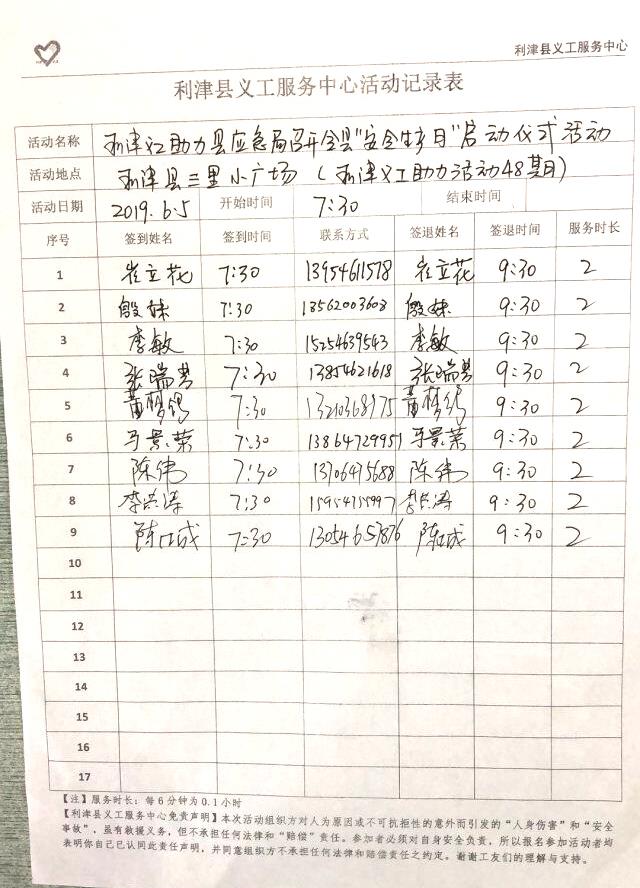 利津县义工服务中心
利津县义工服务中心活动记录表
活动名称 利津义工助力县应急局召开全县"安全生产月"启动仪式活动
活动地点 利津县三里小广场（利津义工助力活动48期）
活动日期 2019.6.5 开始时间 7:30 结束时间
序号 签到姓名 签到时间 联系方式 签退姓名 签退时间 服务时长
1 崔立花 7:30 13954611578 崔立花 9:30 2
2 殷妹 7:30 13562003603 殷妹 9:30 2
3 李敏 7:30 15254639543 李敏 9:30 2
4 张瑞芳 7:30 13854621618 张瑞芳 9:30 2
5 7:30 13210368175 9:30 2
6 马景荣 7:30 13864729951 马景荣 9:30 2
7 陈伟 7:30 13706475688 陈伟 9:30 2
8 李洪涛 7:30 15954755997 李洪涛 9:30 2
9 7:30 13054657876 9:30 2
10
11
12
13
14
15
16
17
【注】服务时长：每6分钟为0.1小时
【利津县义工服务中心免责声明】本次活动组织方对人为原因或不可抗拒性的意外而引发的"人身伤害"和"安全
事故"，虽有救援义务，但不承担任何法律和"赔偿"责任。参加者必须对自身安全负责，所以报名参加活动者均
表明你自己已认同此责任声明，并同意组织方不承担任何法律和赔偿责任之约定。谢谢工友们的理解与支持。